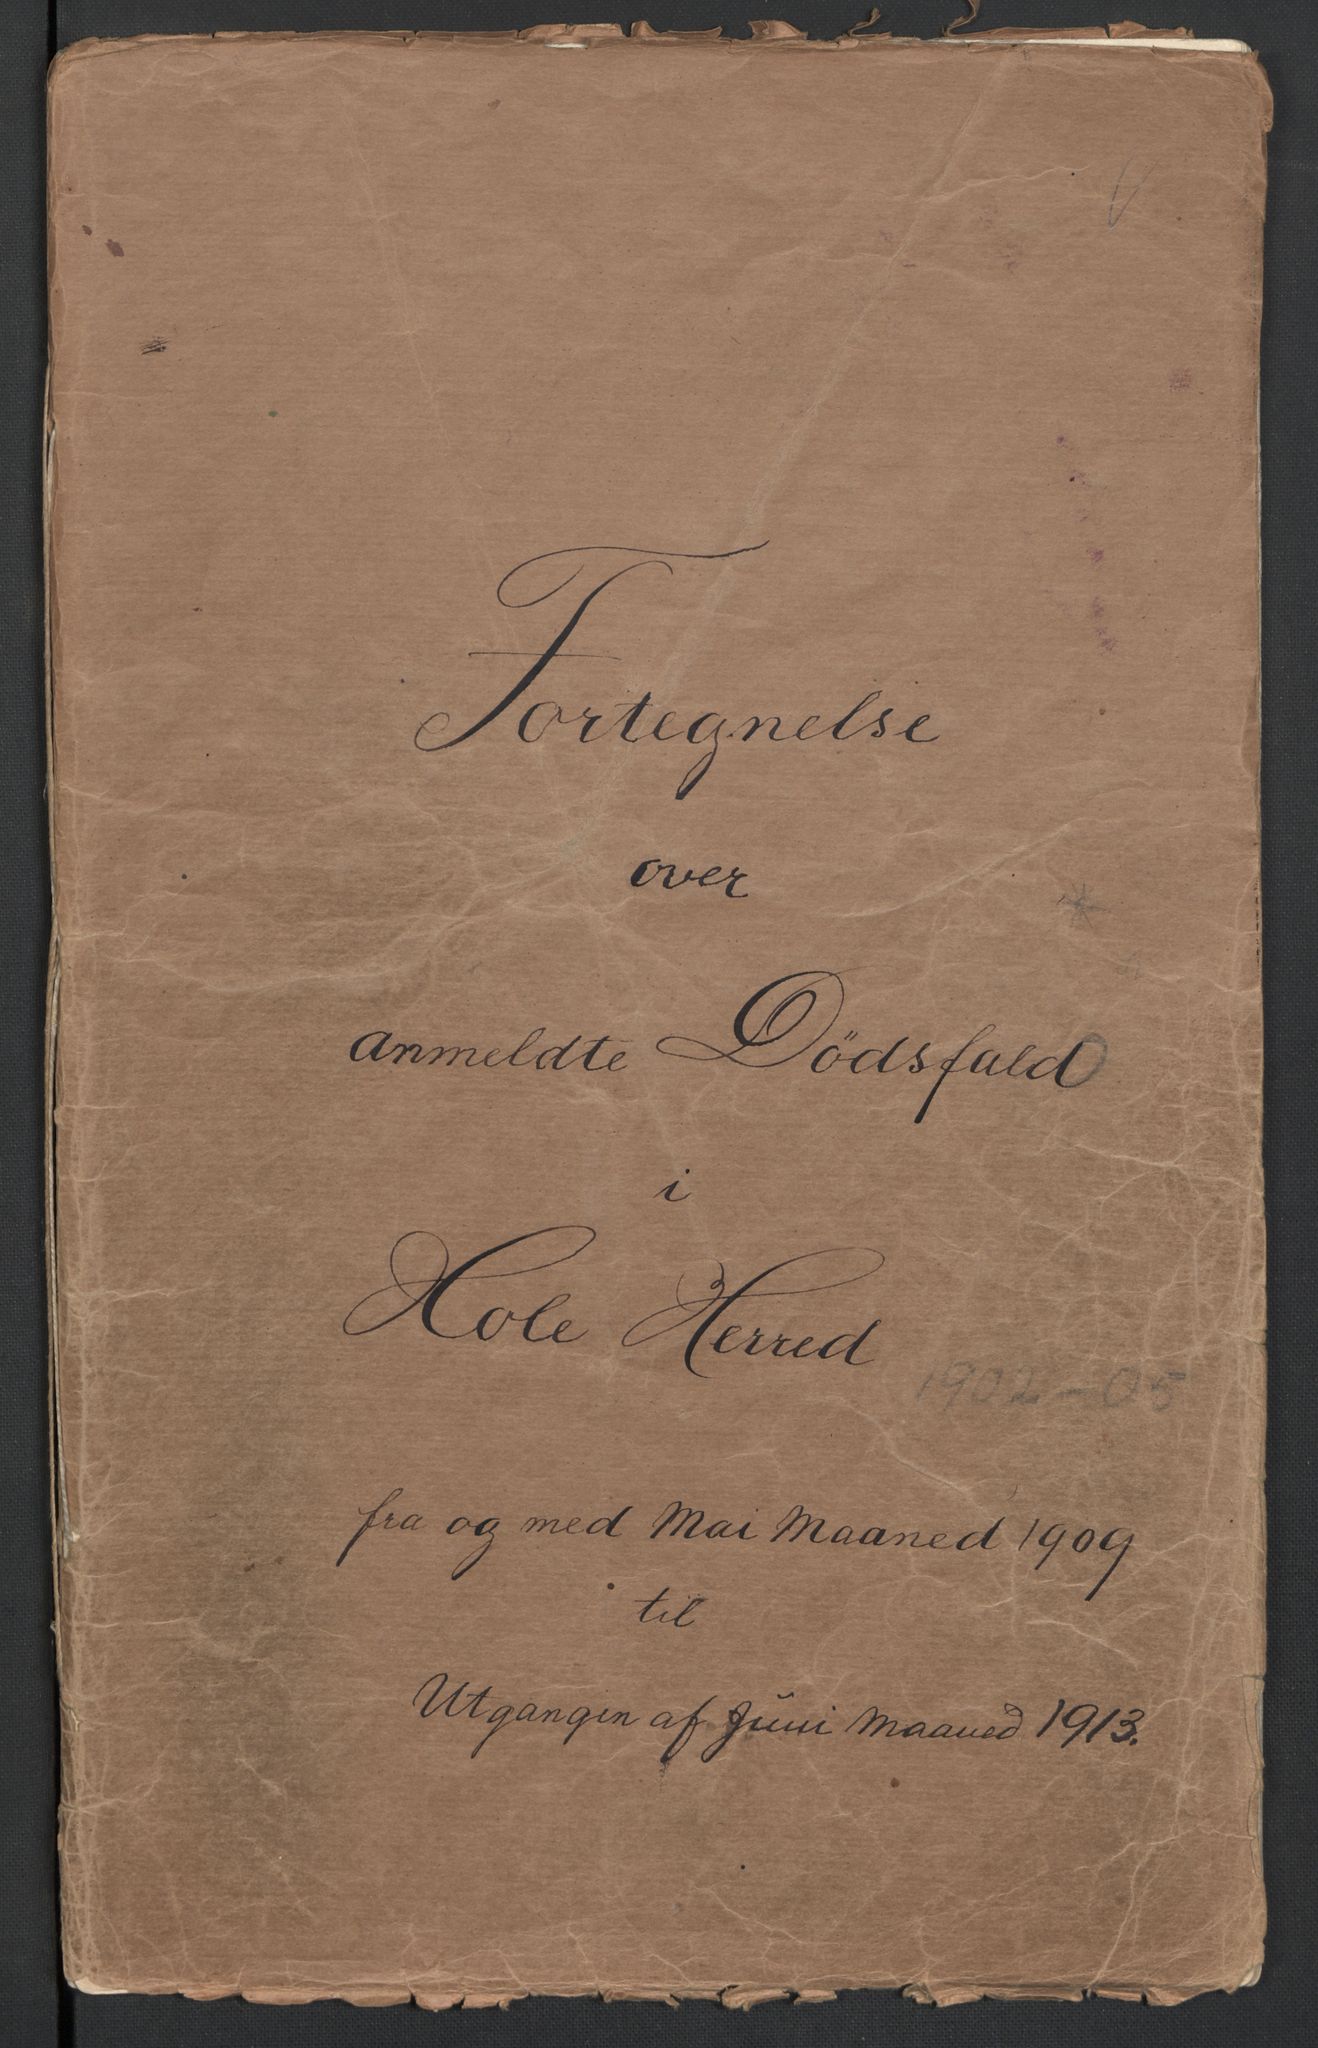 Fortegnelse
over
anmeldte Dödsfald
i
Hole Herred
1902-05
fra og med Mai Maaned 1909
til
Utgangen af Juni Maaned 1913.